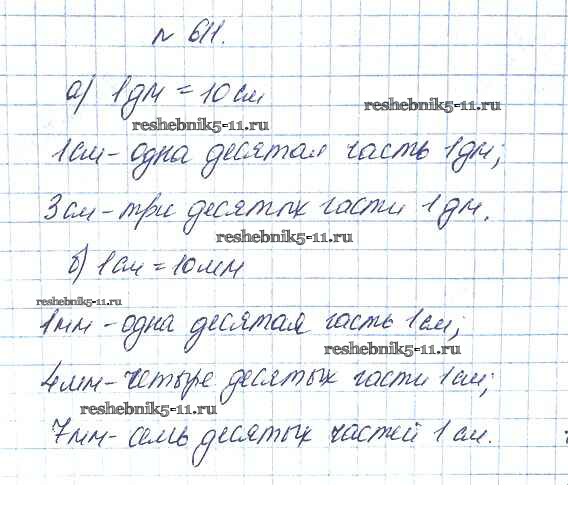 № 611.
а) 1дм = 10см
reshebnik5-11.ru
reshebnik5-11.ru
1см - одна десятая часть 1дм;
3см - три десятых части 1дм.
reshebnik5-11.ru
б) 1см = 10мм
reshebnik5-11.ru
1мм - одна десятая часть 1см;
reshebnik5-11.ru
4мм - четыре десятых части 1см;
reshebnik5-11.ru
7мм - семь десятых частей 1см.